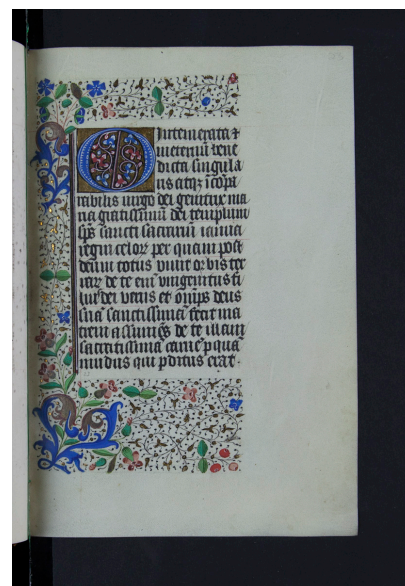 O intemerata ⁊
in eternū bene
dicta singula
ris atqꝫ īcōpa
rabilis uirgo dei genitrix ma
ria gratissimū dei templum
sp̄s sancti sacrariū ianua
regni celoꝝ per quam post
deum totus viuit orbis ter
raꝝ de te eni vnigenitus fi
lius dei verus et oīnp̄s deus
suā sanctissimā fecit ma
trem assumēs de te illam
sacratissimā carnē ꝑ quā
mūdus qui ꝑditus erat